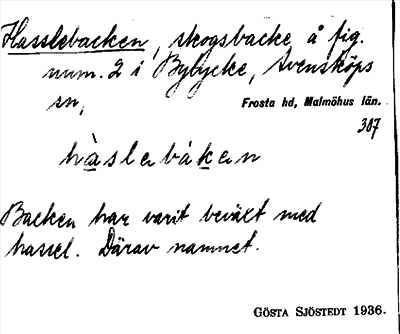 Hasslebacken, skogsbacke å fig.
num. 2 i Bylycke, Svensköps
sn, Frosta hd, Malmöhus län.
307
hàslebáken
Backen har varit beväxt med
hassel. Därav namnet.
GÖSTA SJÖSTEDT 1936.